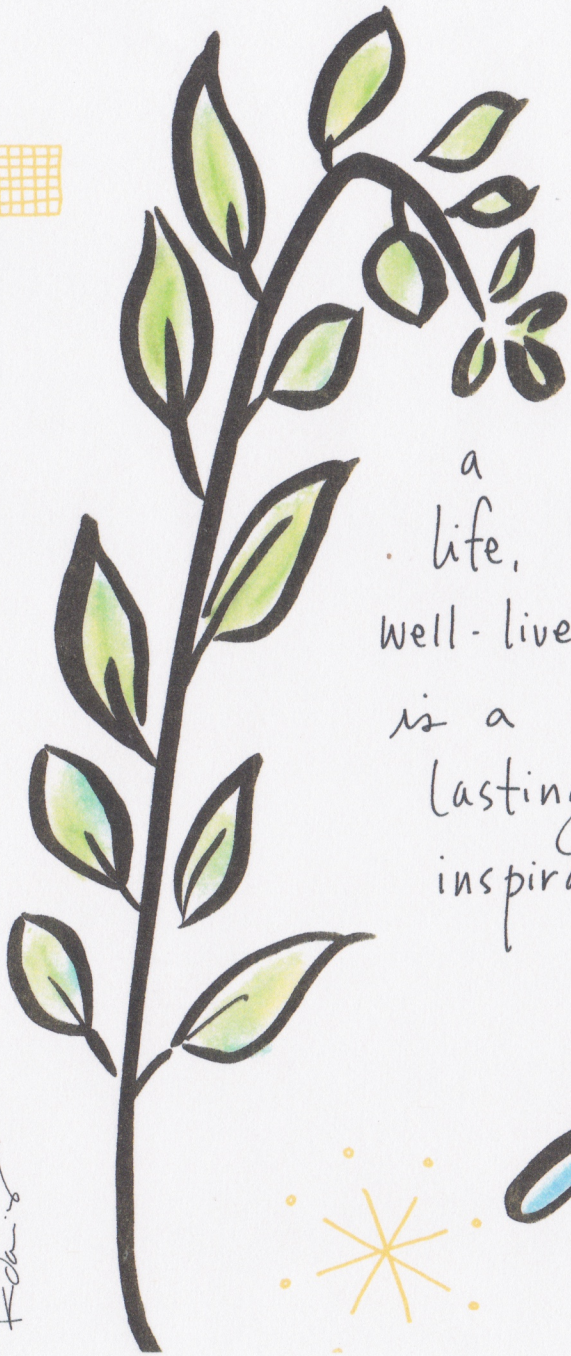 a
life,
well-live
is a
lasting
inspira